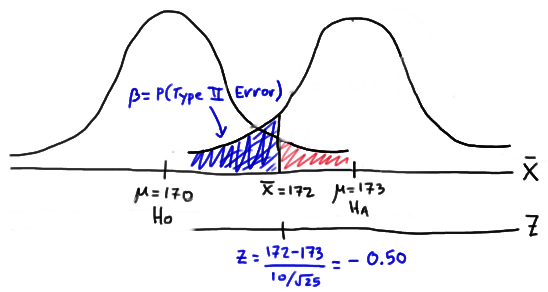 β = P(Type II Error)
X̄
μ = 170
X̄ = 172
μ = 173
H₀
Hₐ
Z
Z = (172-173)/(10/√25) = - 0.50